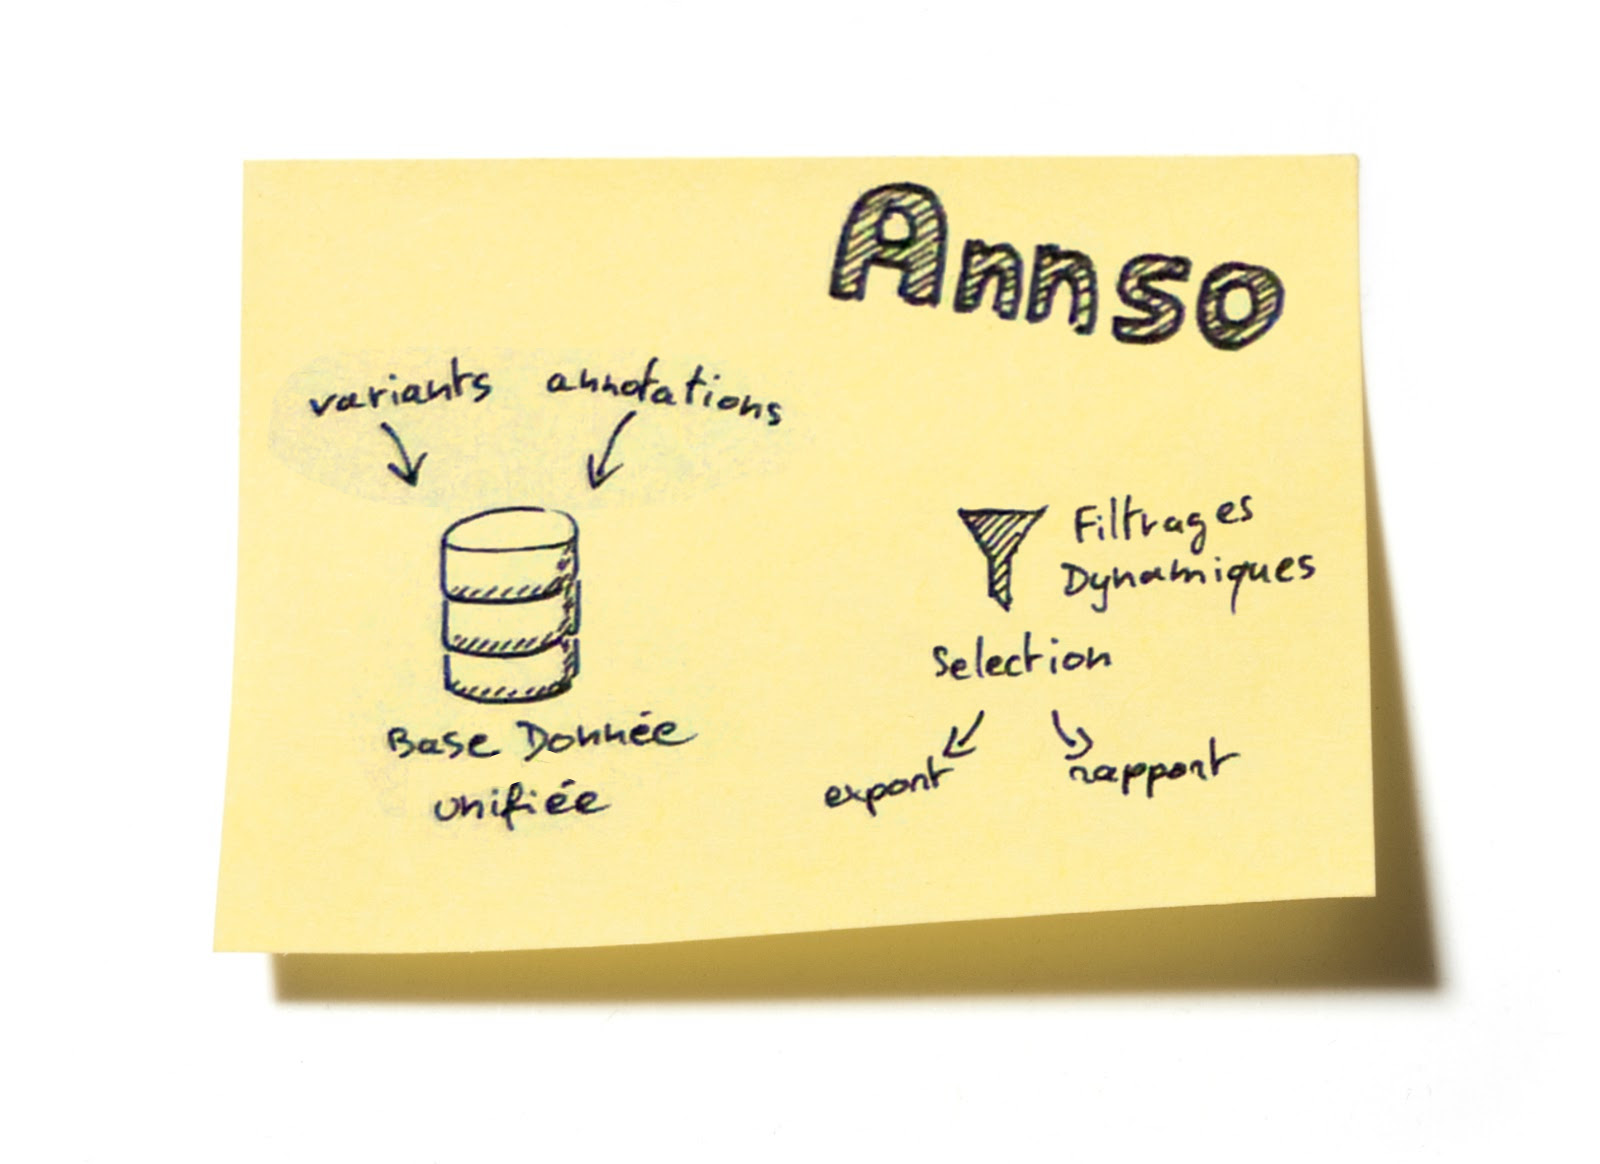 Annso
variants annotations
Base Donnée
unifiée
Filtrages
Dynamiques
Selection
export rapport